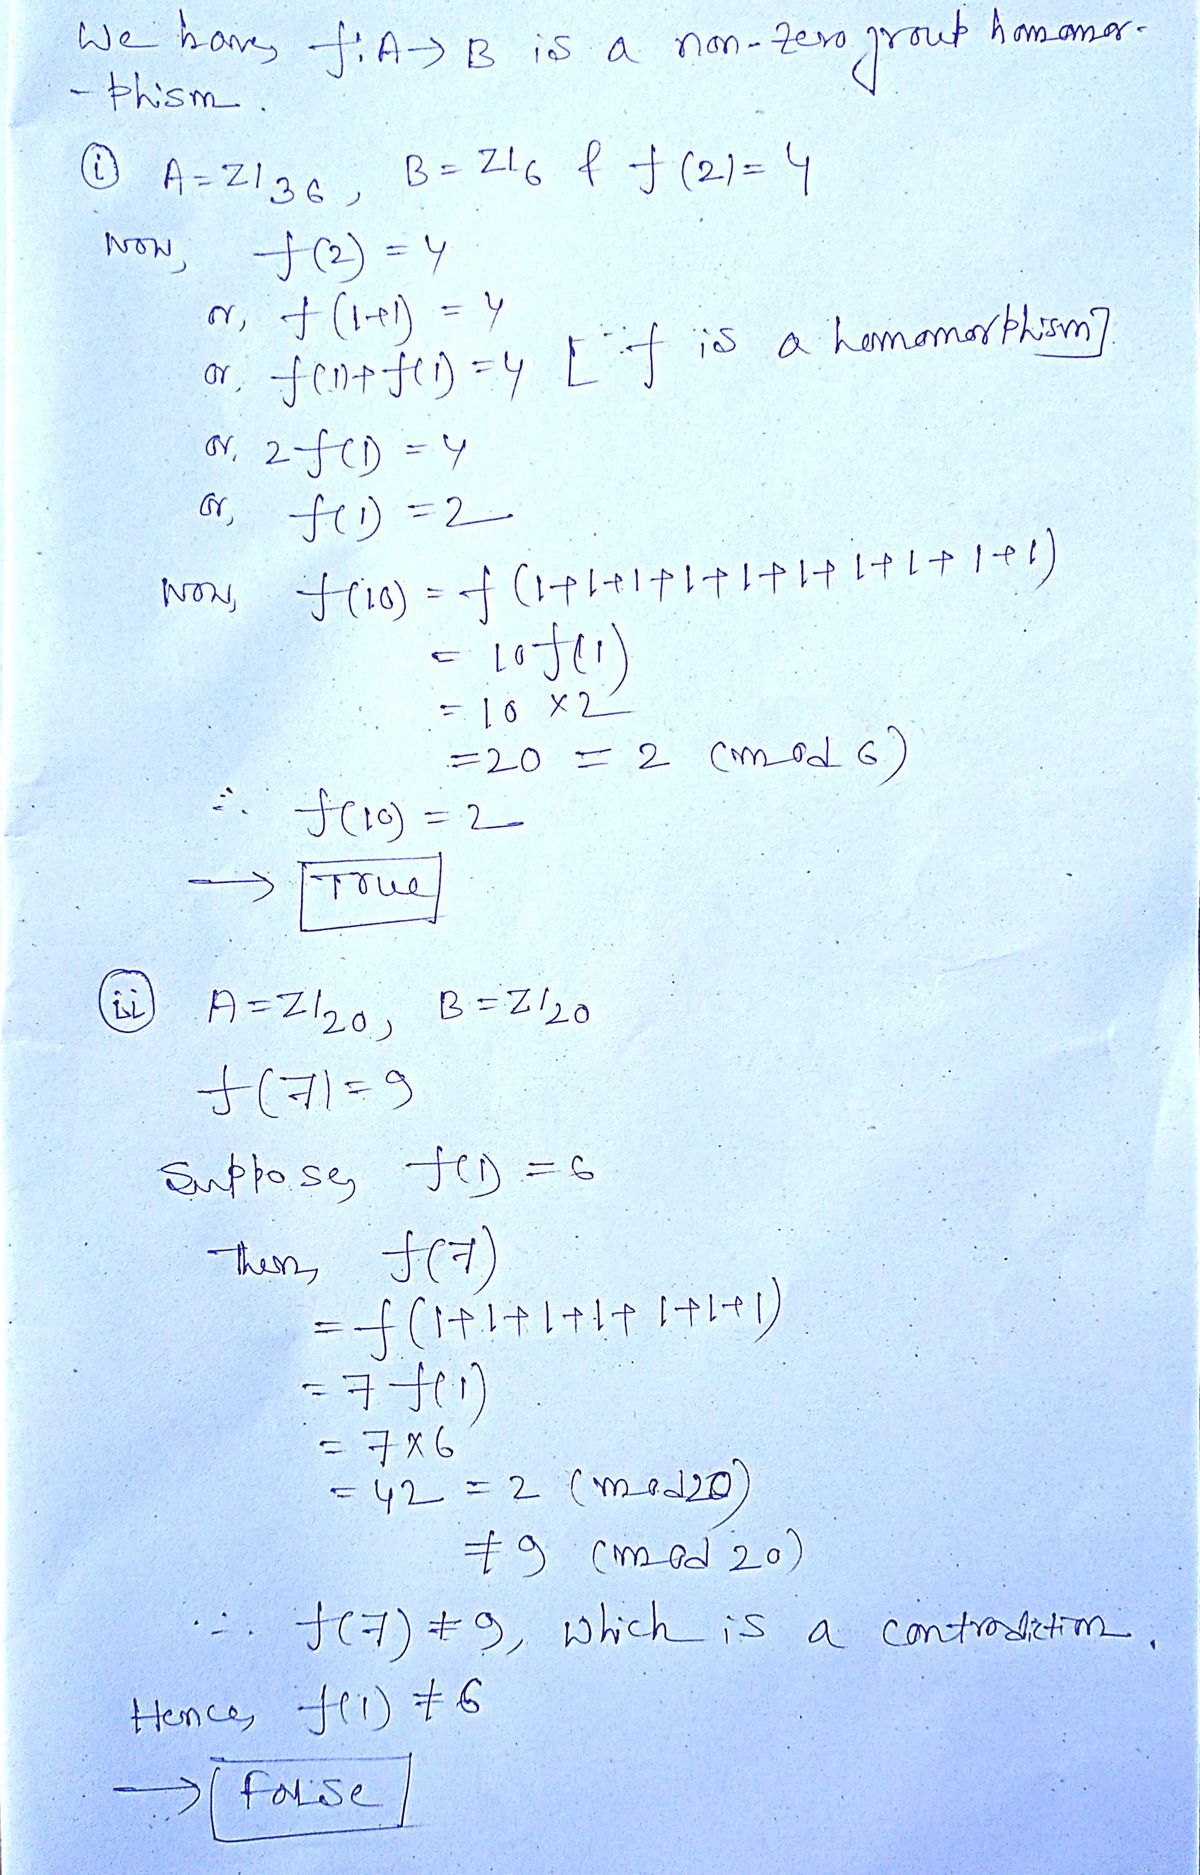 We have, f: A → B is a non-zero group homomor-
-phism.
(i) A = Z/36, B = Z/6 & f(2) = 4
Now, f(2) = 4
or, f(1+1) = 4
or, f(1) + f(1) = 4 [∵ f is a homomorphism]
or, 2f(1) = 4
or, f(1) = 2
Now, f(10) = f(1+1+1+1+1+1+1+1+1+1)
= 10f(1)
= 10 × 2
= 20 = 2 (mod 6)
∴ f(10) = 2
→ True
(ii) A = Z/20, B = Z/20
f(7) = 9
Suppose, f(1) = 6
Then, f(7)
= f(1+1+1+1+1+1+1)
= 7f(1)
= 7 × 6
= 42 = 2 (mod 20)
≠ 9 (mod 20)
∴ f(7) ≠ 9, which is a contradiction.
Hence, f(1) ≠ 6
→ False